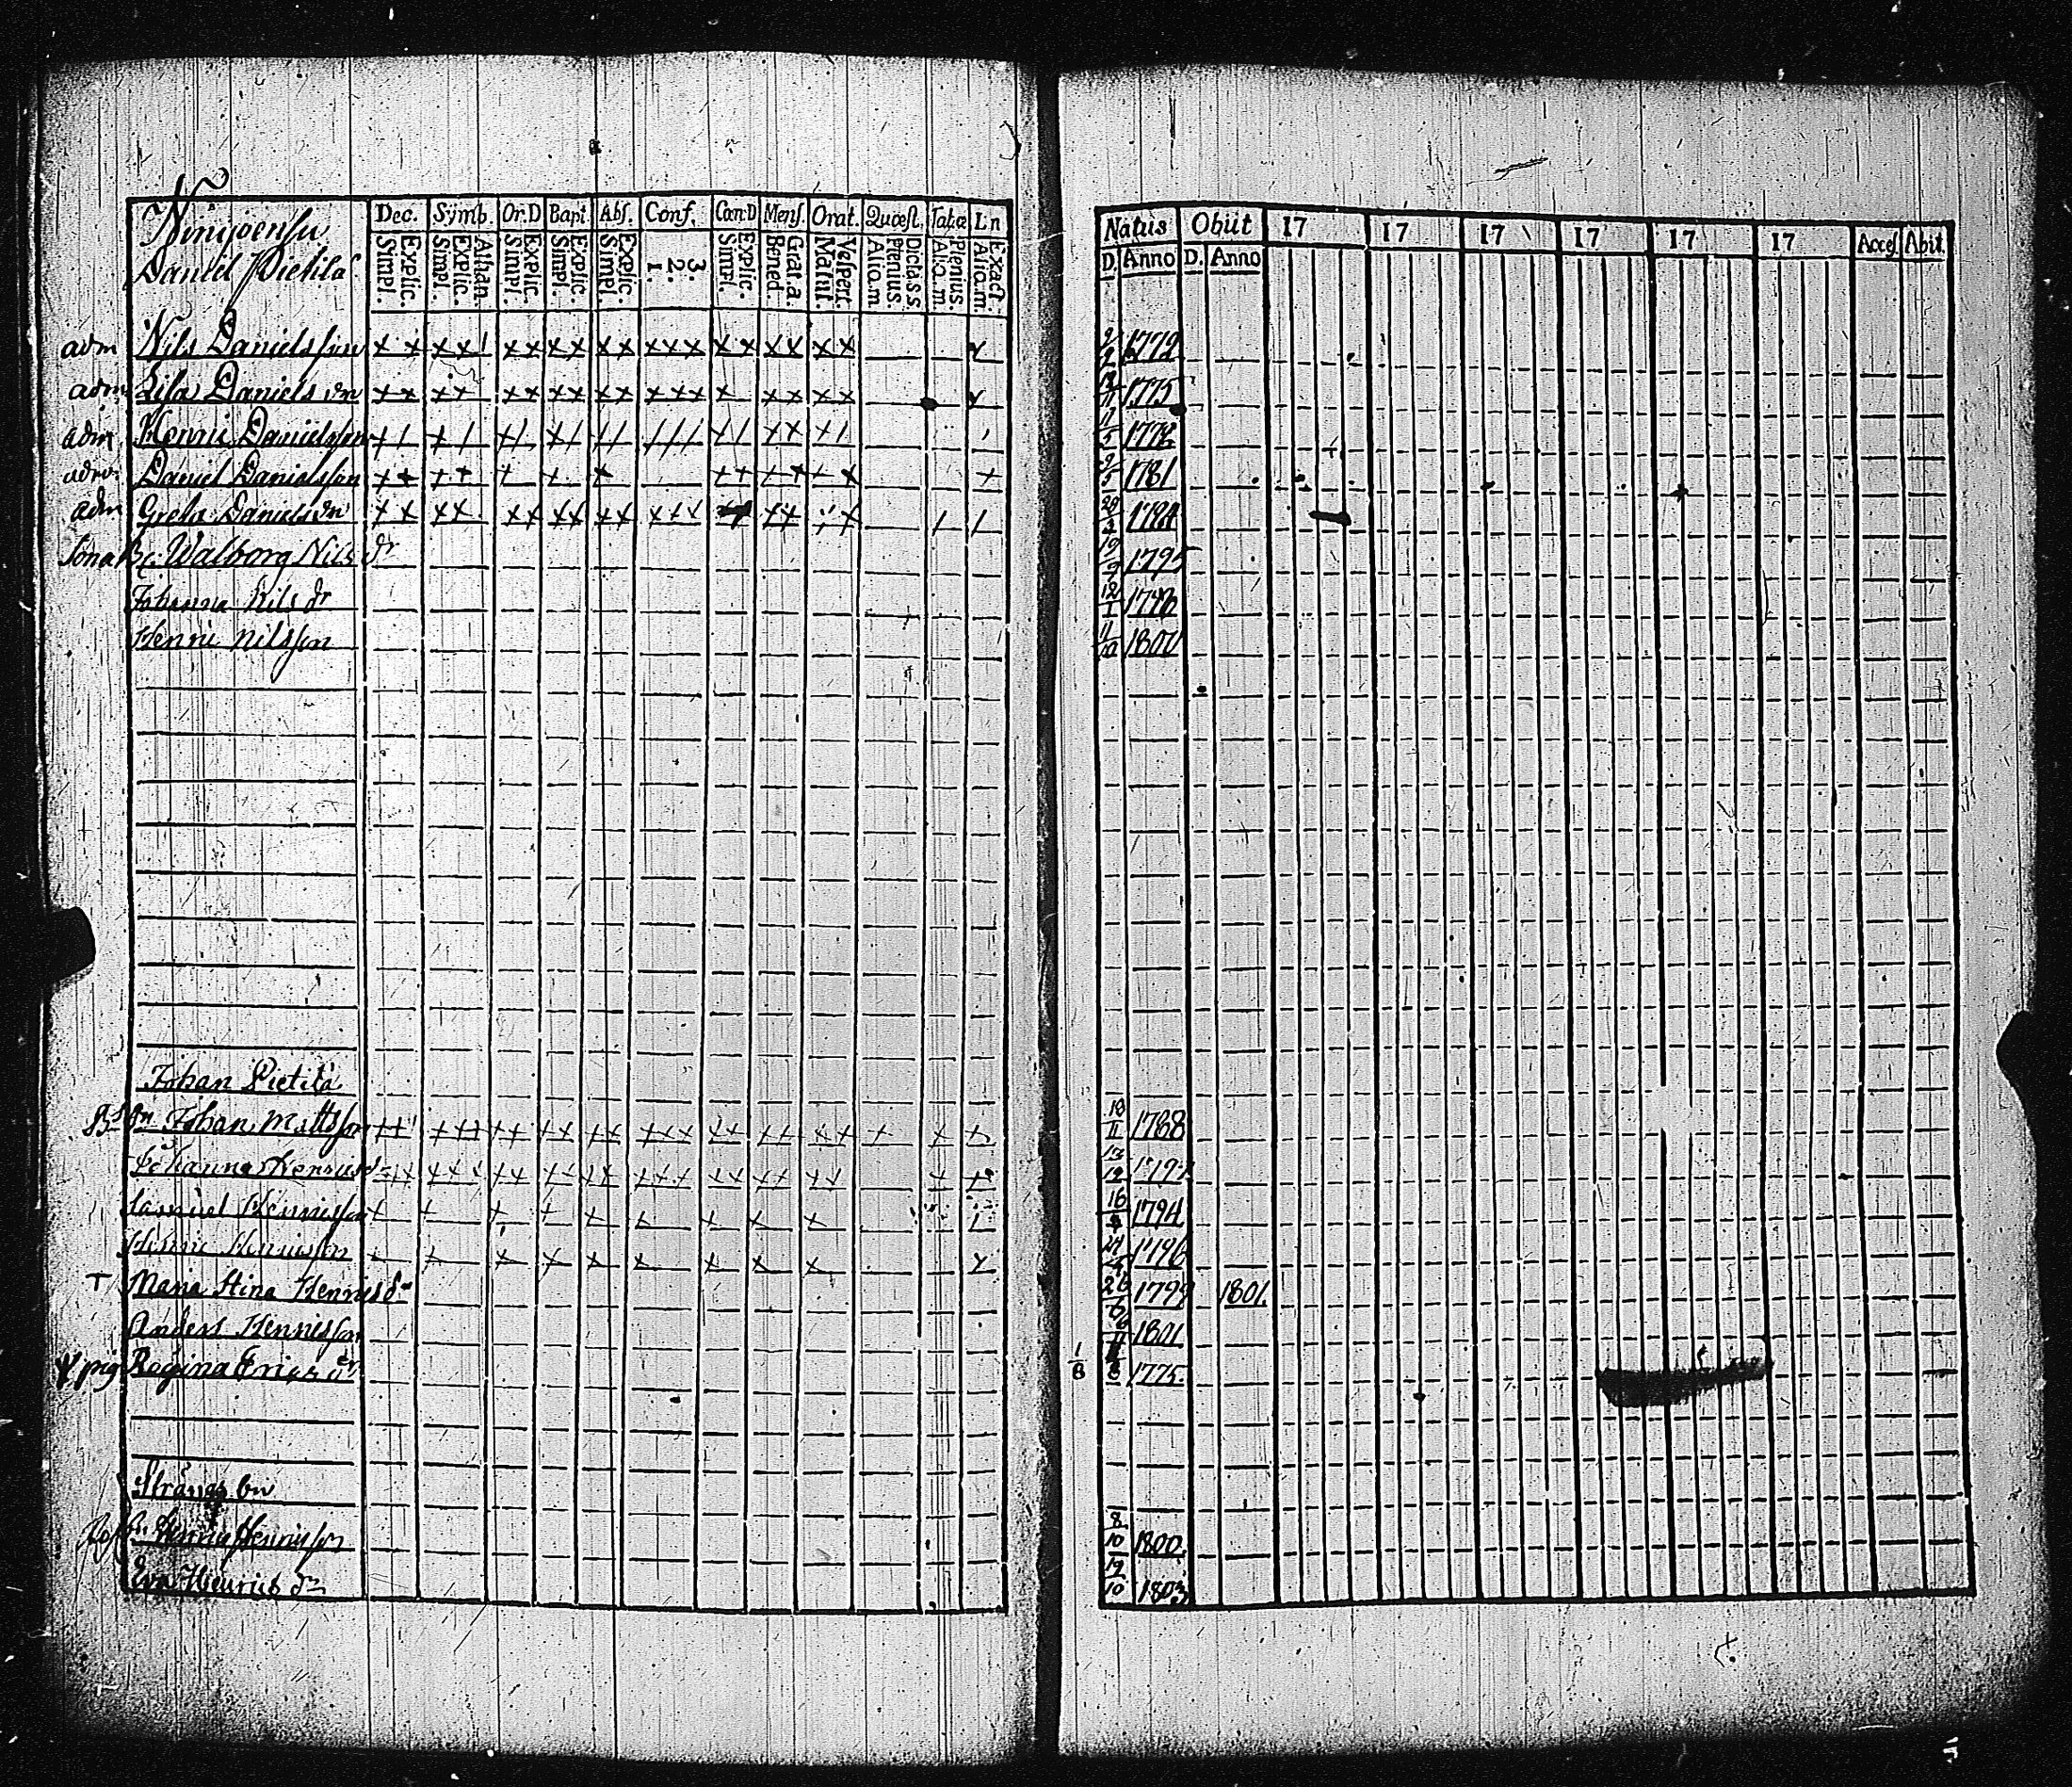 Dec. Symb. Or.D Bapt. Abs. Conf. Cœn:D Mens. Orat. Quæst. Tabæ L:n
Daniel Pietilä
Explic. Simpl. Athan. Explic. Simpl. Explic. Simpl. Explic. Simpl. Explic. Simpl. 3. 2. 1. Explic. Simpl. Grat.a. Bened. Vespert. Matut. Dicta s.s. Plenius. Alio.m Plenius. Alio.m. Exact. Alio.m.
Natus Obiit 17 17 17 17 17 17 Acces. Abit.
D. Anno D. Anno
adm Nils Danielsson 1772
adm Lisa Daniels dr 1775
adm Henric Danielsson
adm Daniel Danielsson 1781
adm Greta Daniels dr
Walborg Nils dr 1795
Johanna Nils dr
Henric Nilsson 11/10 1800
Johan Pietilä
Johan Mattsson 18/11 1768
Johanna Henrics dr
Samuel Henricsson 1794
Henric Henricsson 1796
T Maria Stina Henrics dr 1799 1801.
Anders Henricsson 1801
pig Regina Erics dr 1/8 1775.
Henricsson 8/10 1800.
Eva Henrics dr 12/10 1803